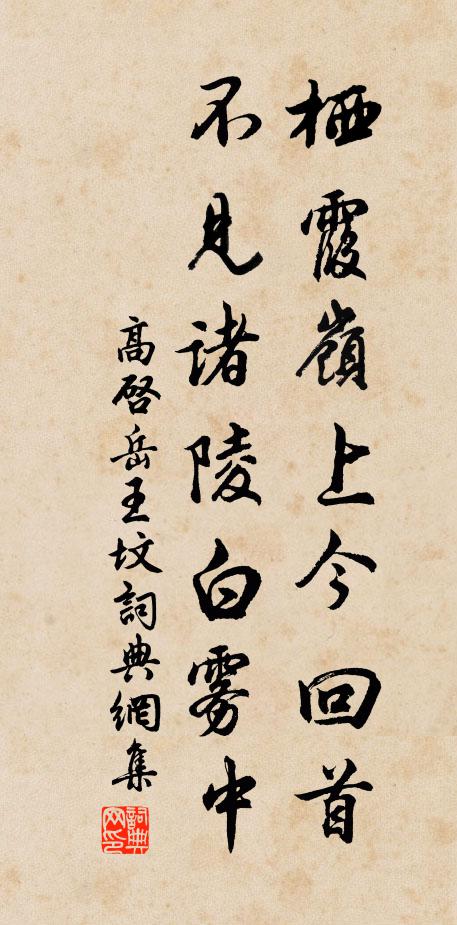 栖霞嶺上今回首
不見諸陵白雾中
高啓岳王坟詞典網集
詞典网印